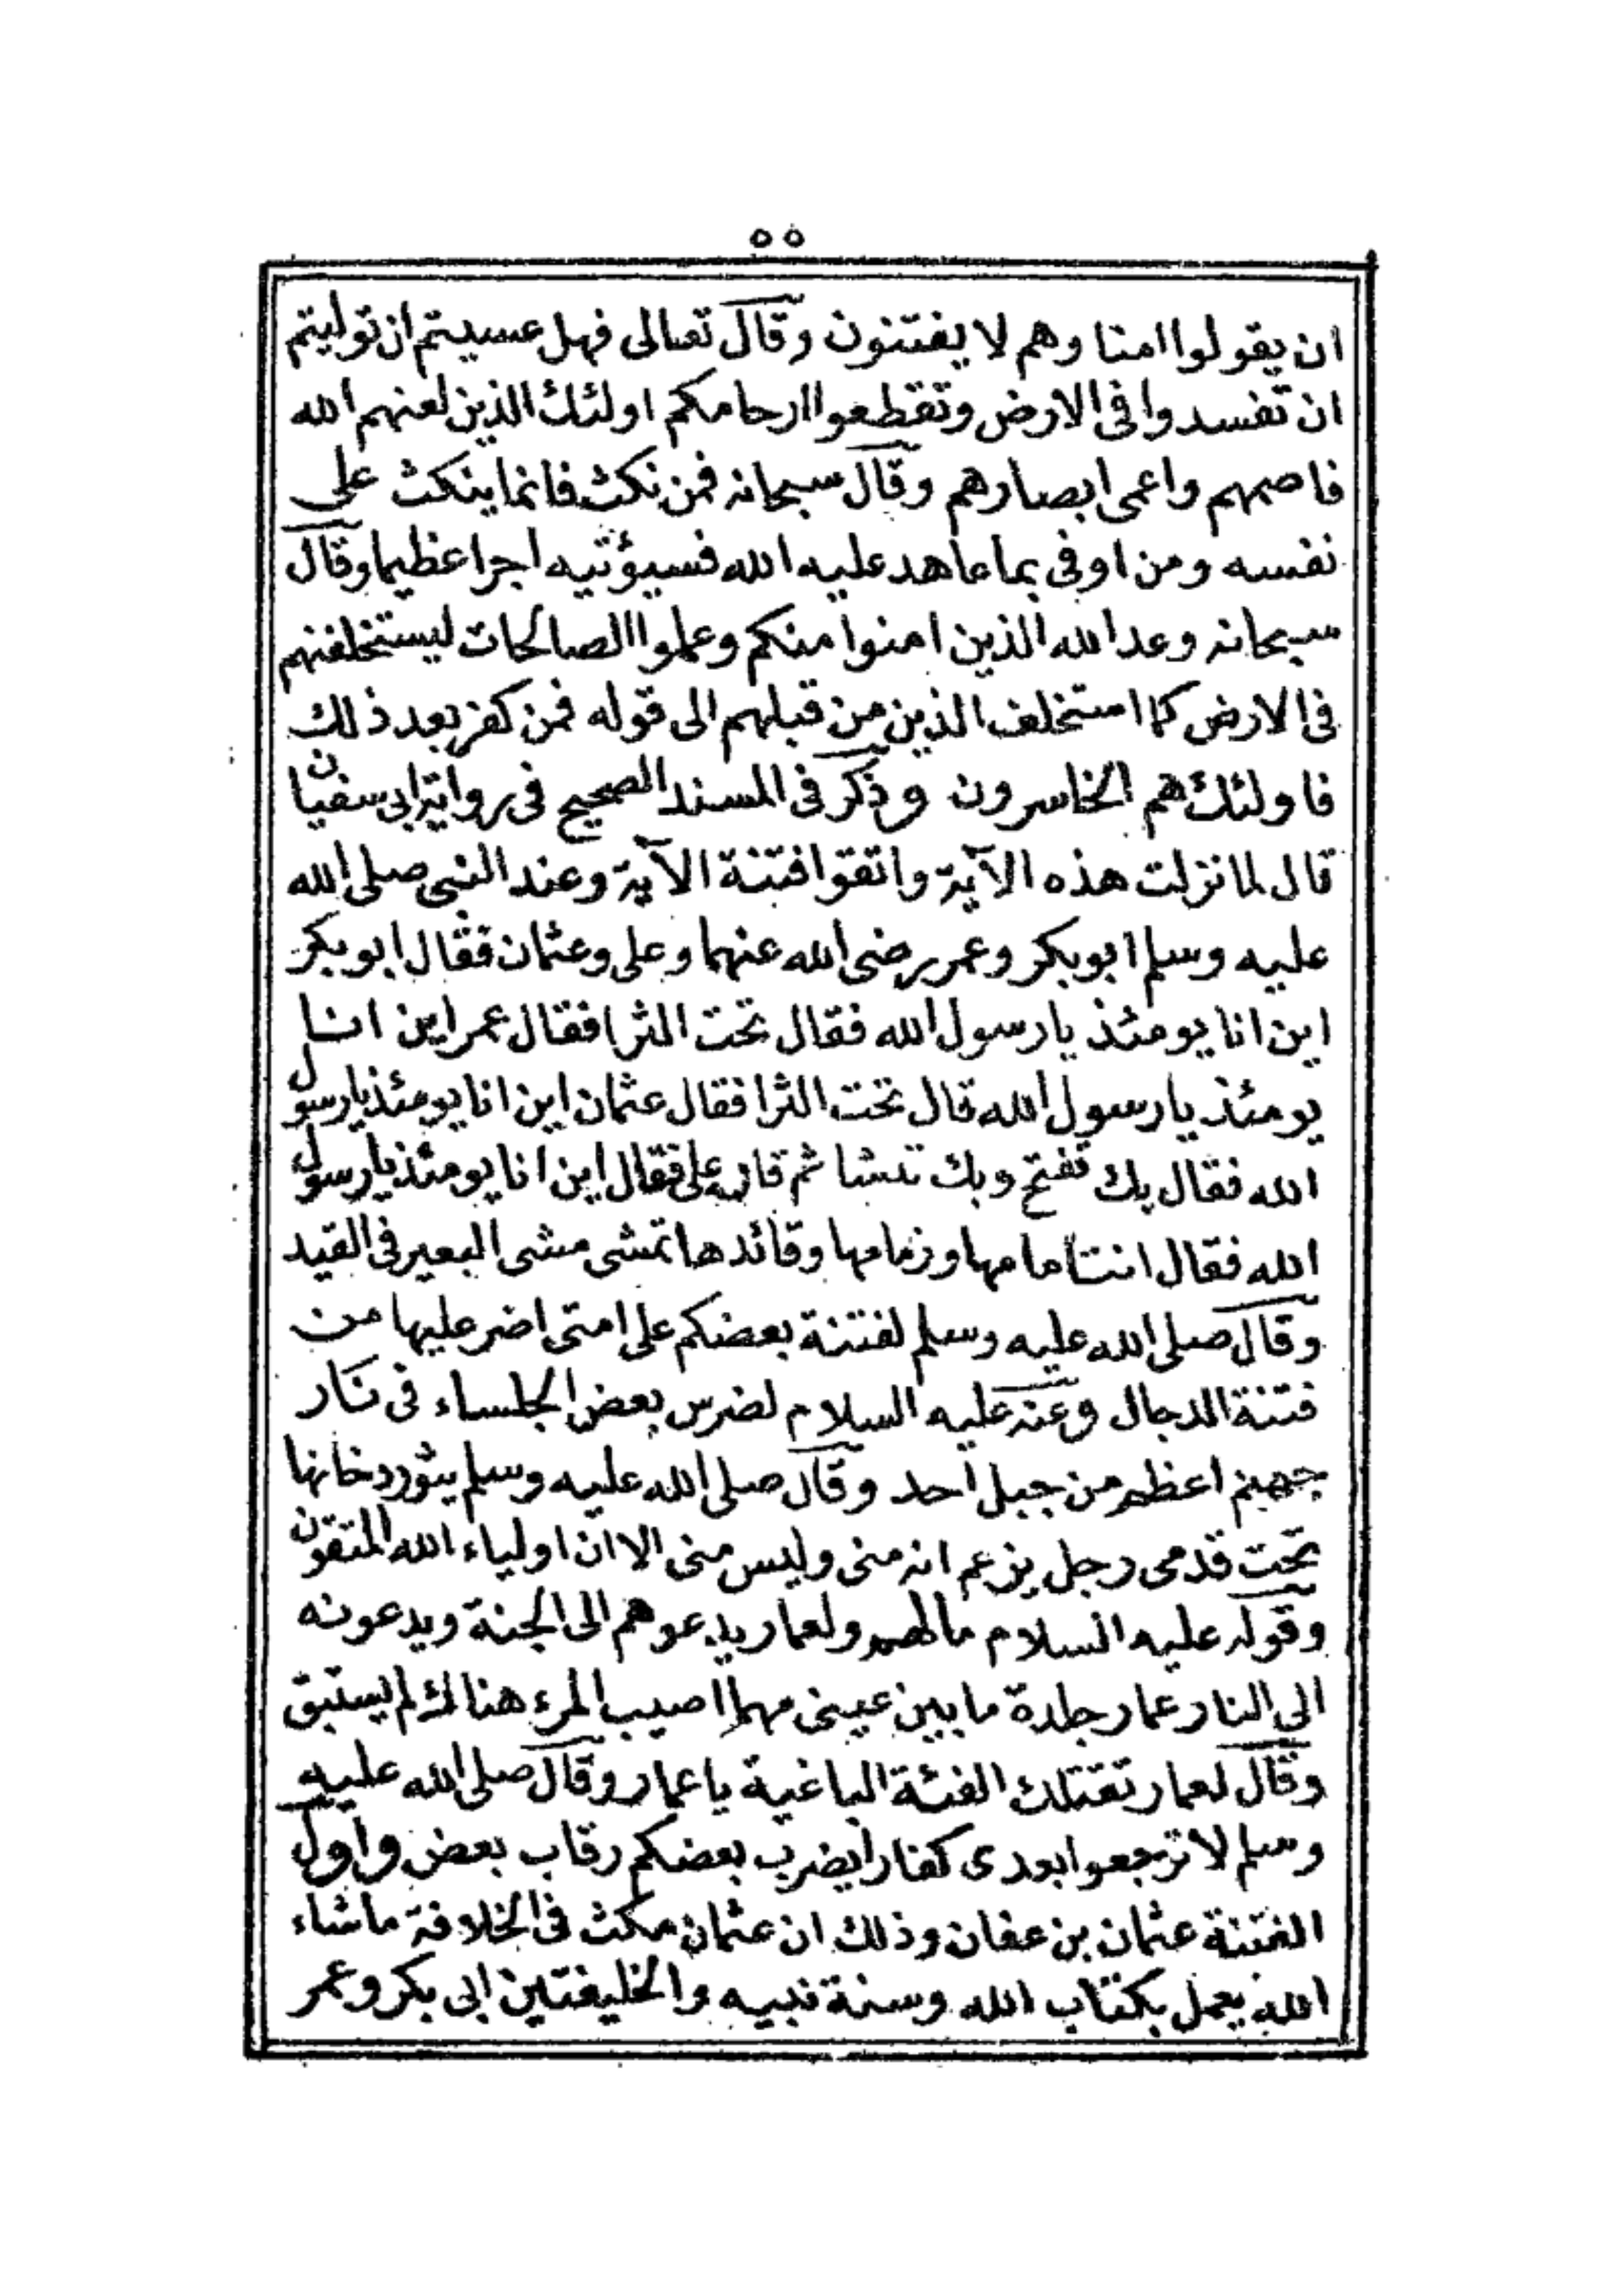 ٥٥
ان يقولوا امنا وهم لا يفتنون وقال تعالى فهل عسيتم ان توليتم
ان تفسدوا فى الارض وتقطعوا ارحامكم اولئك الذين لعنهم الله
فاصمهم واعمى ابصارهم وقال سبحانه فمن نكث فانما ينكث على
نفسه ومن اوفى بما عاهد عليه الله فسيؤتيه اجرا عظيما وقال
سبحانه وعد الله الذين امنوا منكم وعملوا الصالحات ليستخلفنهم
فى الارض كما استخلف الذين من قبلهم الى قوله فمن كفر بعد ذلك
فاولئك هم الخاسرون وذكر فى المسند الصحيح فى رواية ابى سفيان
قال لما نزلت هذه الآية واتقوا فتنة الآية وعند النبى صلى الله
عليه وسلم ابوبكر وعمر رضى الله عنهما وعلى وعثمان فقال ابوبكر
اين انا يومئذ يا رسول الله فقال تحت الثرا فقال عمر اين انا
يومئذ يا رسول الله قال تحت الثرا فقال عثمان اين انا يومئذ يا رسول
الله فقال بك تفتح وبك تنشا ثم قام على فقال اين انا يومئذ يا رسول
الله فقال انت امامها وزمامها وقائدها تمشى مشى البعير فى القيد
وقال صلى الله عليه وسلم لفتنة بعضكم على امتى اضر عليها من
فتنة الدجال وعنه عليه السلام لضرس بعض الجلساء فى نار
جهنم اعظم من جبل احد وقال صلى الله عليه وسلم يثور دخانها
تحت قدمى رجل يزعم انه منى وليس منى الا ان اولياء الله المتقون
وقوله عليه السلام مالهم ولعمار يدعوهم الى الجنة ويدعونه
الى النار عمار جلدة ما بين عينى مهما اصيب المرء هنالك لم يستبق
وقال لعمار تقتلك الفئة الباغية يا عمار وقال صلى الله عليه
وسلم لا ترجعوا بعدى كفارا يضرب بعضكم رقاب بعض واول
الفتنة عثمان بن عفان وذلك ان عثمان مكث فى الخلافة ماشاء
الله يعمل بكتاب الله وسنة نبيه والخليفتين ابى بكر وعمر